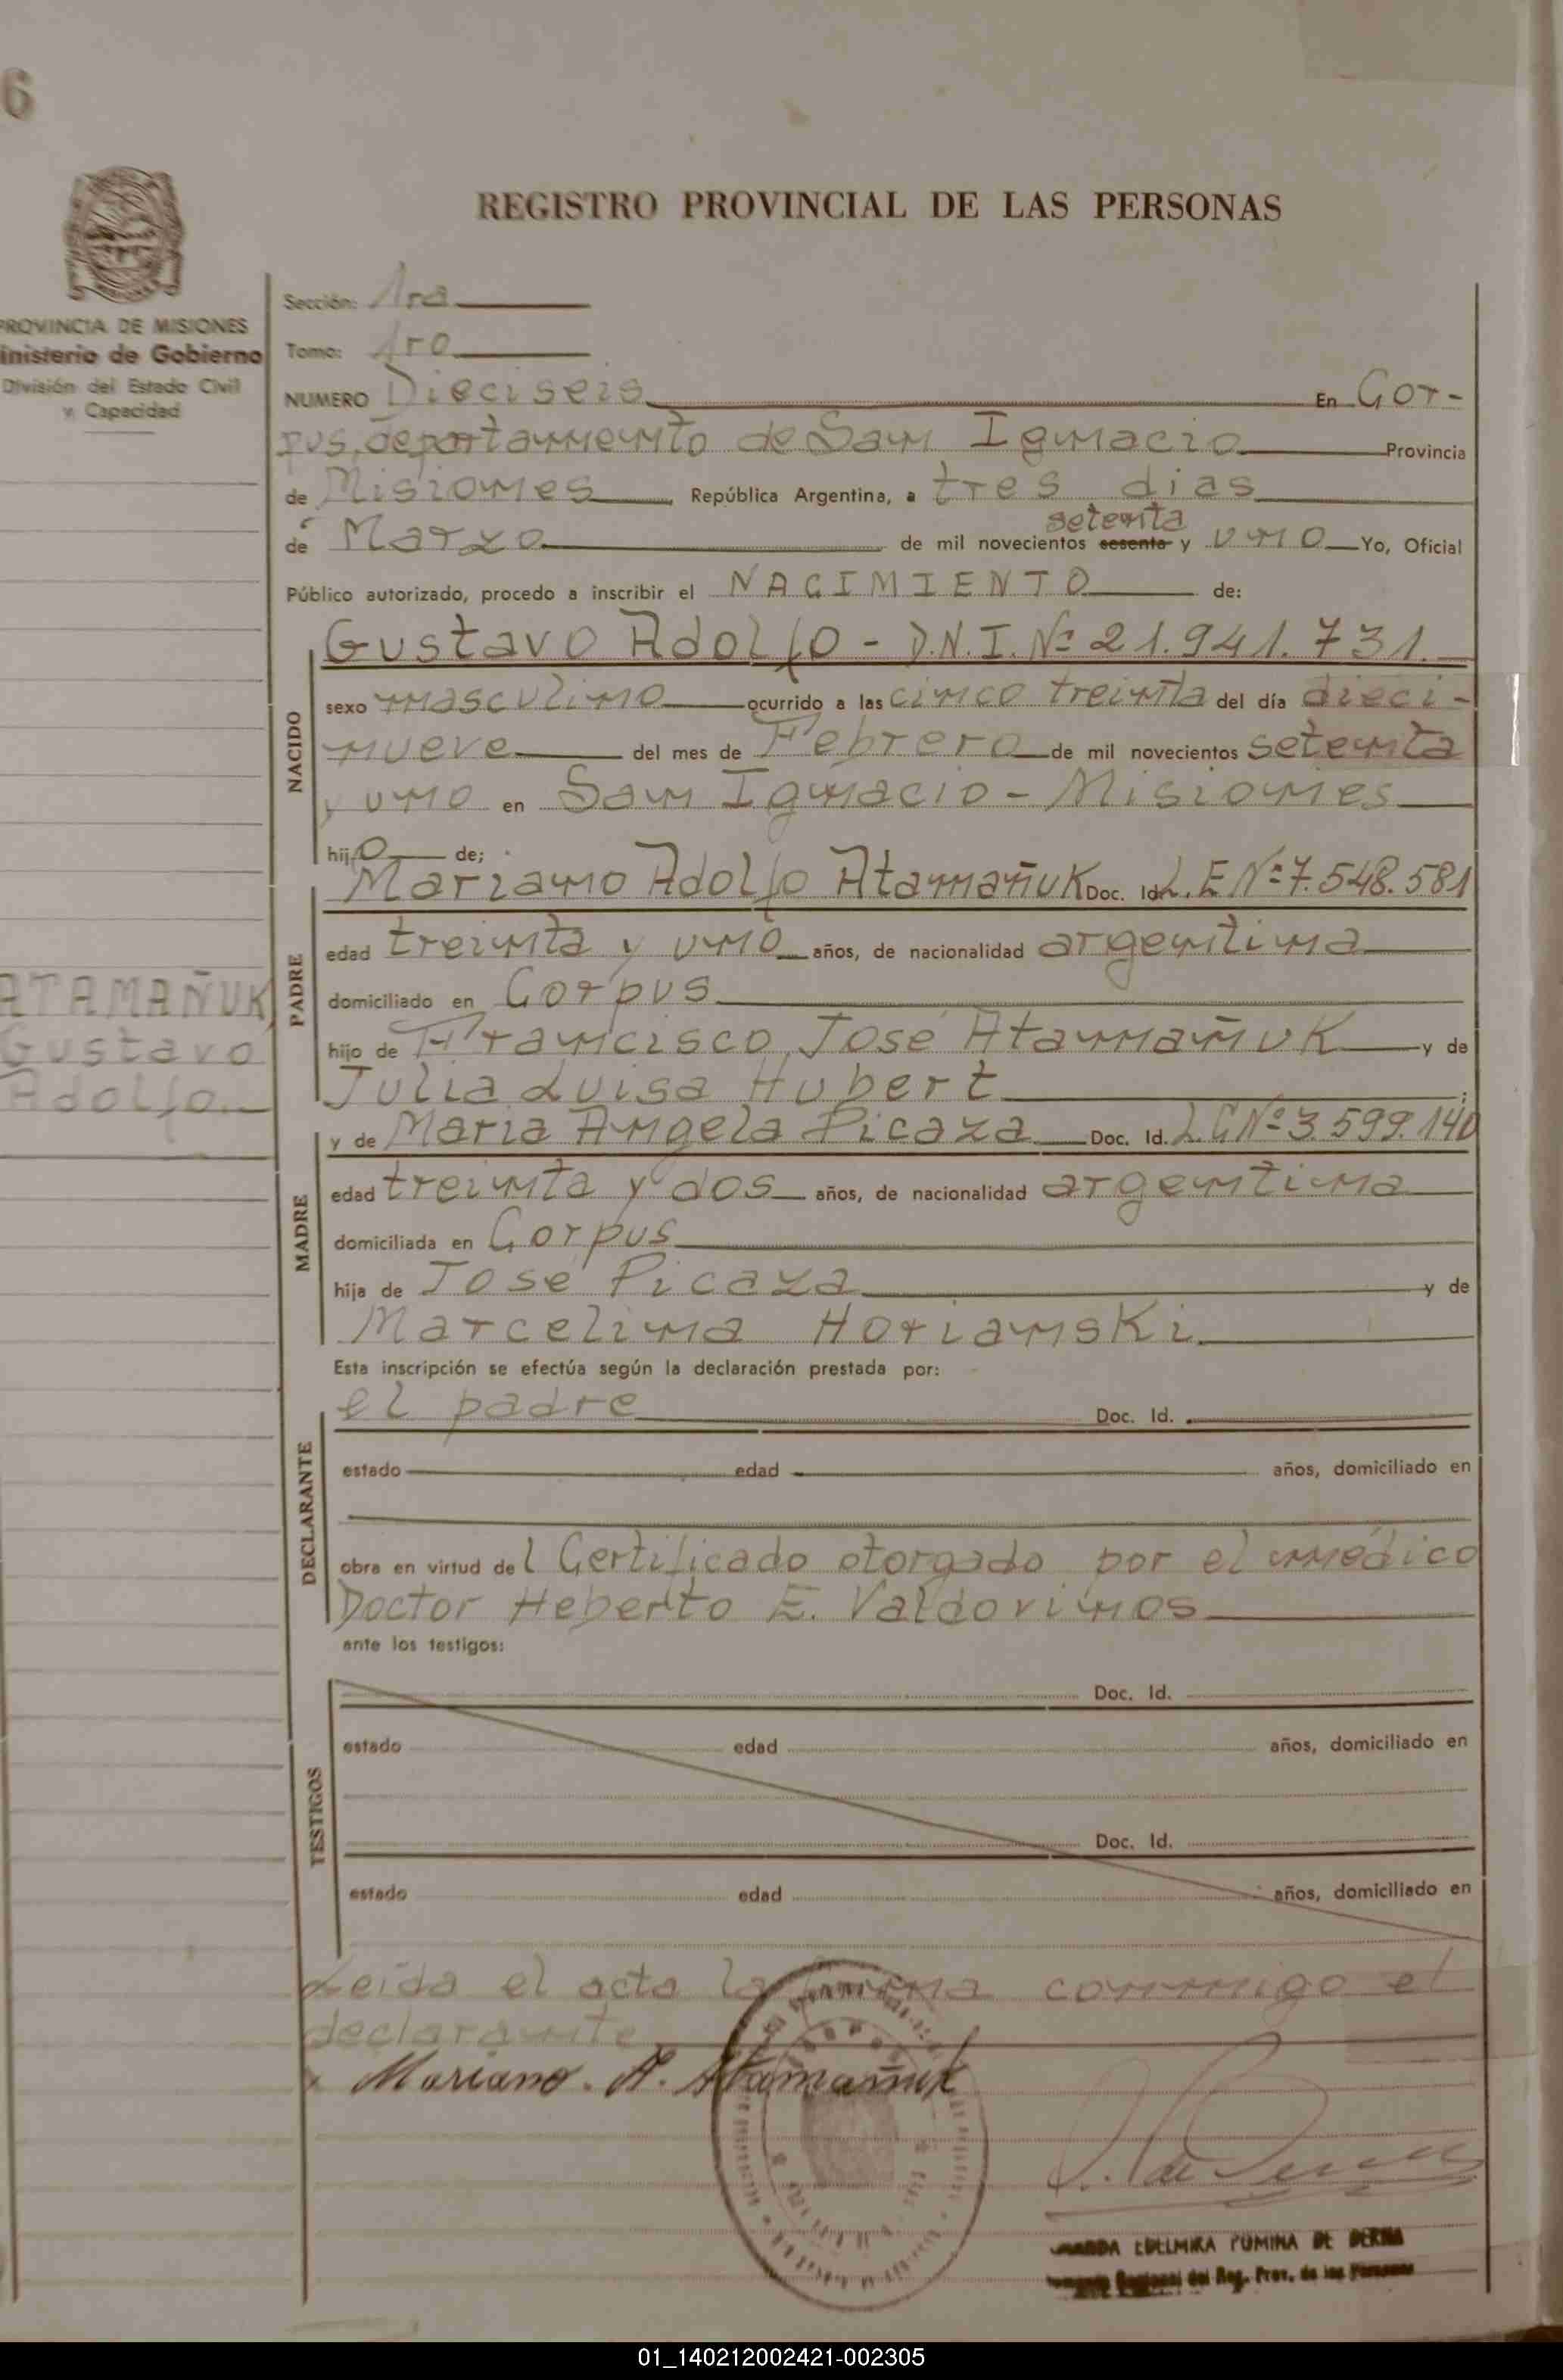 6
REGISTRO PROVINCIAL DE LAS PERSONAS
PROVINCIA DE MISIONES
inisterio de Gobierno
División del Estado Civil
y Capacidad
ATAMAÑUK
Gustavo
Adolfo
Sección: 1ra
Tomo: 1ro
NUMERO Dieciseis En Cor-
pus, departamento de San Ignacio Provincia
de Misiones, República Argentina, a tres dias
setenta
de Marzo de mil novecientos sesenta y uno Yo, Oficial
Público autorizado, procedo a inscribir el NACIMIENTO de:
NACIDO
Gustavo Adolfo - D.N.I. Nº 21.941.731.
sexo masculino ocurrido a las cinco treinta del día dieci-
nueve del mes de Febrero de mil novecientos setenta
y uno en San Ignacio - Misiones
hijo de;
PADRE
Mariano Adolfo Atamañuk Doc. Id. L.E Nº 7.548.581
edad treinta y uno años, de nacionalidad argentina
domiciliado en Corpus
hijo de Francisco José Atamañuk y de
Julia Luisa Hubert;
MADRE
y de Maria Angela Picaza Doc. Id. L.C Nº 3.599.140
edad treinta y dos años, de nacionalidad argentina
domiciliada en Corpus
hija de José Picaza y de
Marcelina Horianski
Esta inscripción se efectúa según la declaración prestada por:
DECLARANTE
el padre Doc. Id.
estado edad años, domiciliado en
obra en virtud del Certificado otorgado por el médico
Doctor Heberto E. Valdovinos
ante los testigos:
TESTIGOS
Doc. Id.
estado edad años, domiciliado en
Doc. Id.
estado edad años, domiciliado en
Leída el acta la firma conmigo el
declarante
x Mariano. A. Atamañuk
EDELMIRA ROMINA DE
del Reg. Prov. de las Personas
01_140212002421-002305